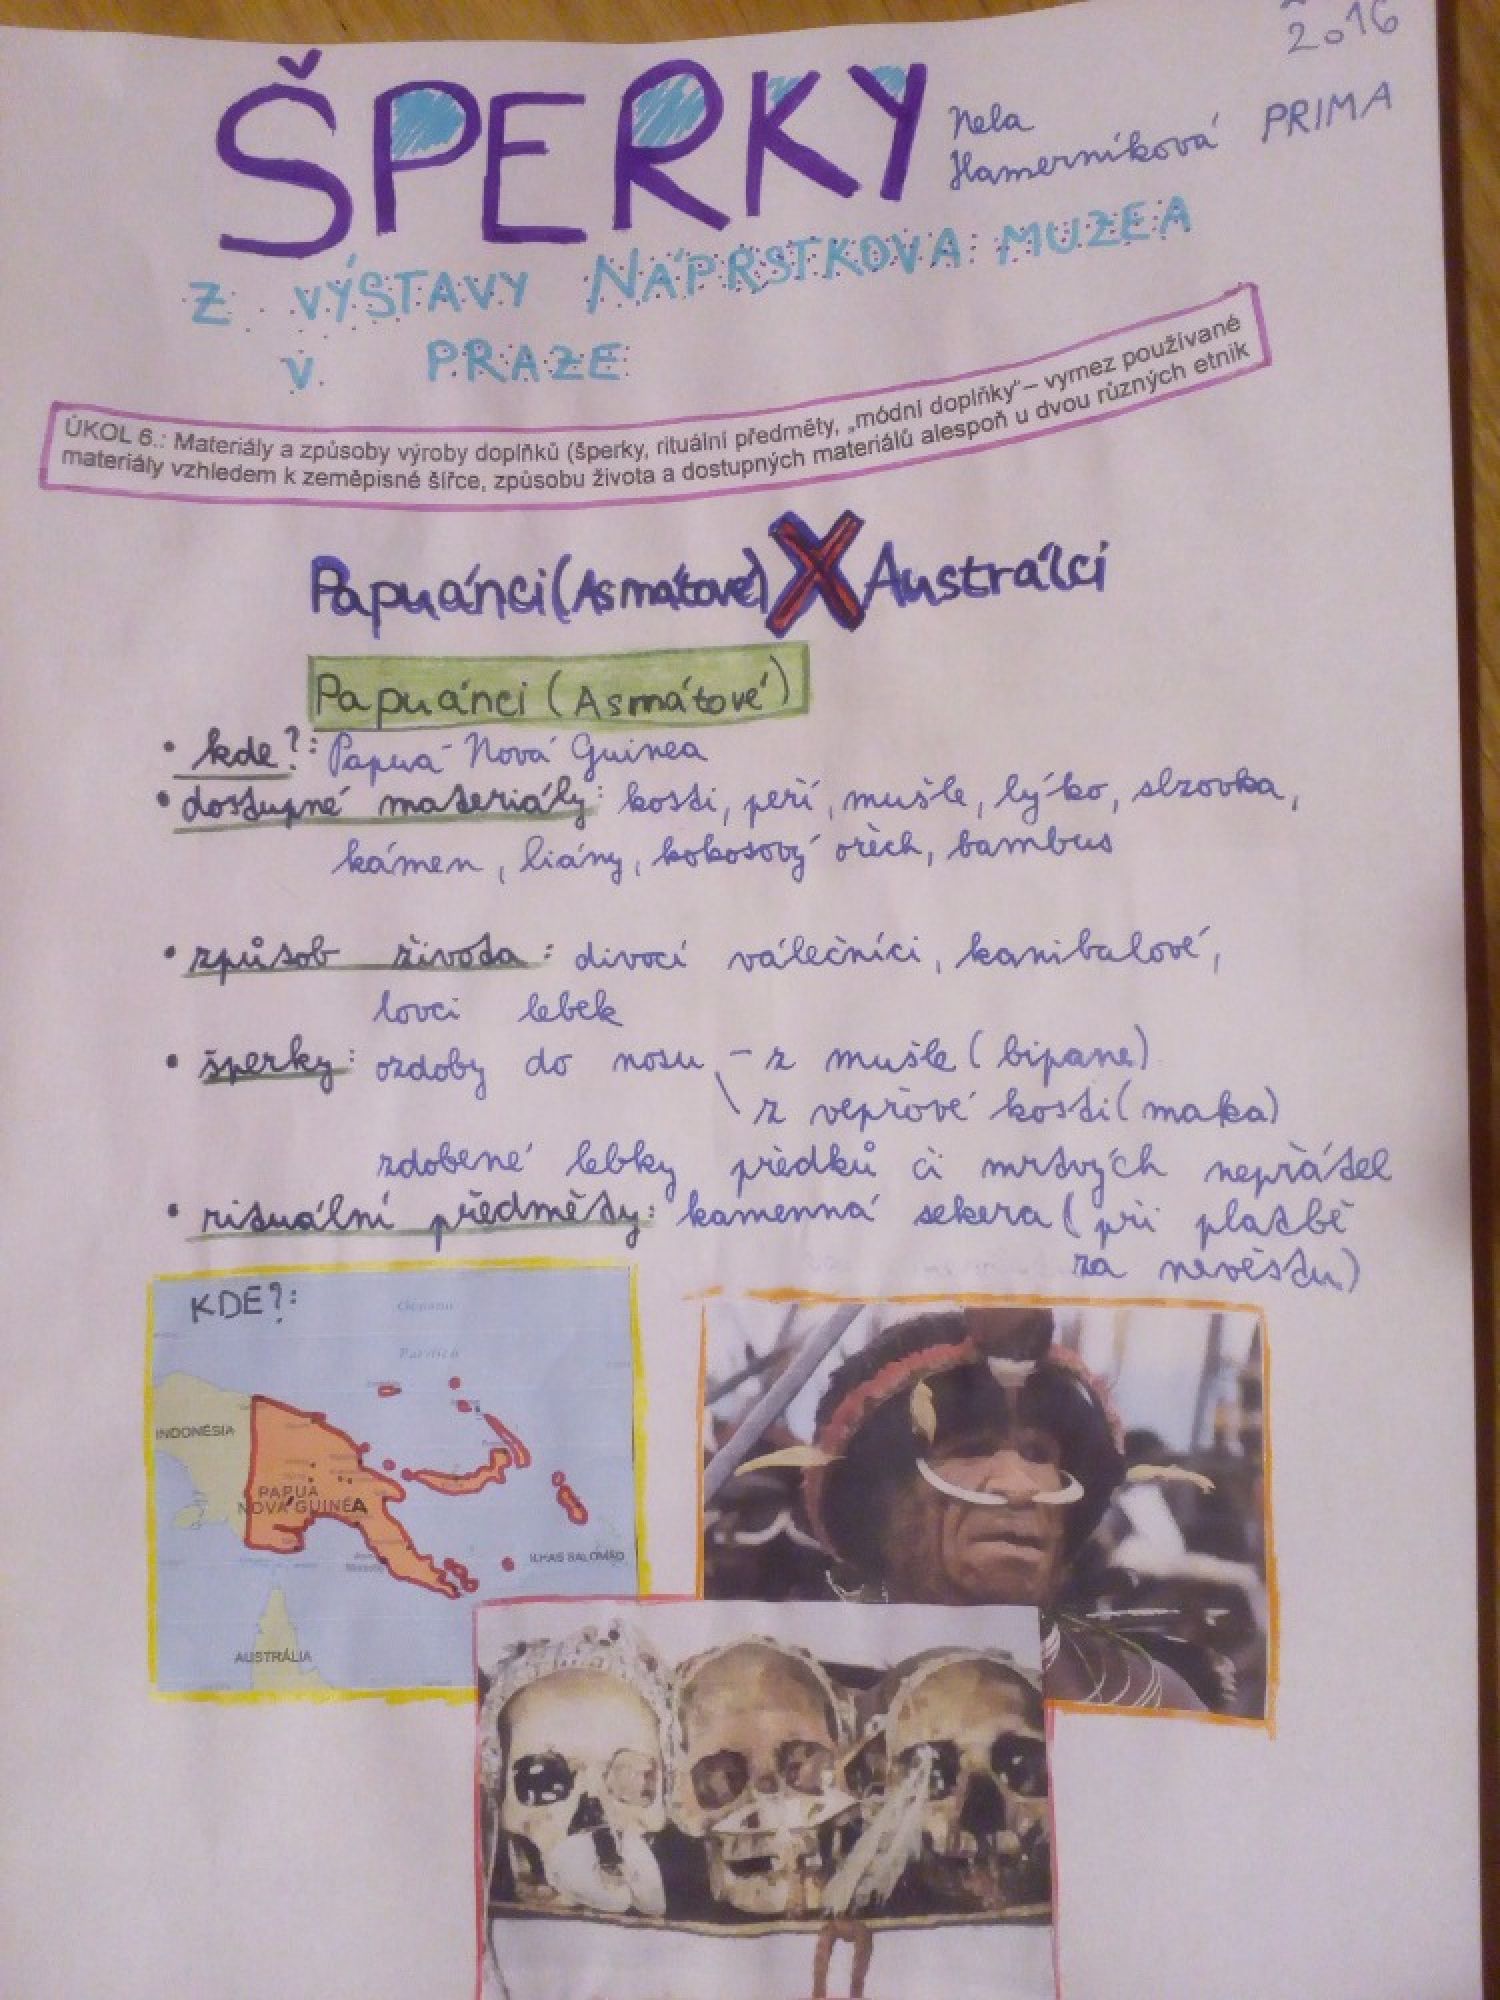 2016
ŠPERKY
Nela
Hamerníková PRIMA
Z VÝSTAVY NÁPRSTKOVA MUZEA
V PRAZE
ÚKOL 6.: Materiály a způsoby výroby doplňků (šperky, rituální předměty, „módní doplňky“– vymez používané
materiály vzhledem k zeměpisné šířce, způsobu života a dostupných materiálů alespoň u dvou různých etnik
Papuánci (Asmátové) X Austrálci
Papuánci (Asmátové)
• kde?: Papua Nová Guinea
• dostupné materiály: kosti, peří, mušle, lýko, slzovka,
kámen, liány, kokosový ořech, bambus
• způsob života: divocí válečníci, kanibalové,
lovci lebek
• šperky: ozdoby do nosu – z mušle (bipane)
\ z vepřové kosti (maka)
zdobené lebky předků či mrtvých nepřátel
• rituální předměty: kamenná sekera (při platbě
za nevěstu)
KDE?:
INDONÉSIA
PAPUA
NOVÁ GUINEA
ILHAS SALOMÃO
AUSTRÁLIA